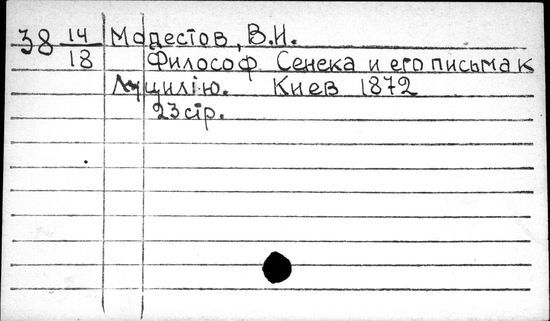 38 14/18 Модестов, В.И.
Философ Сенека и его письма к
Луцилію. Киев 1872
23 стр.